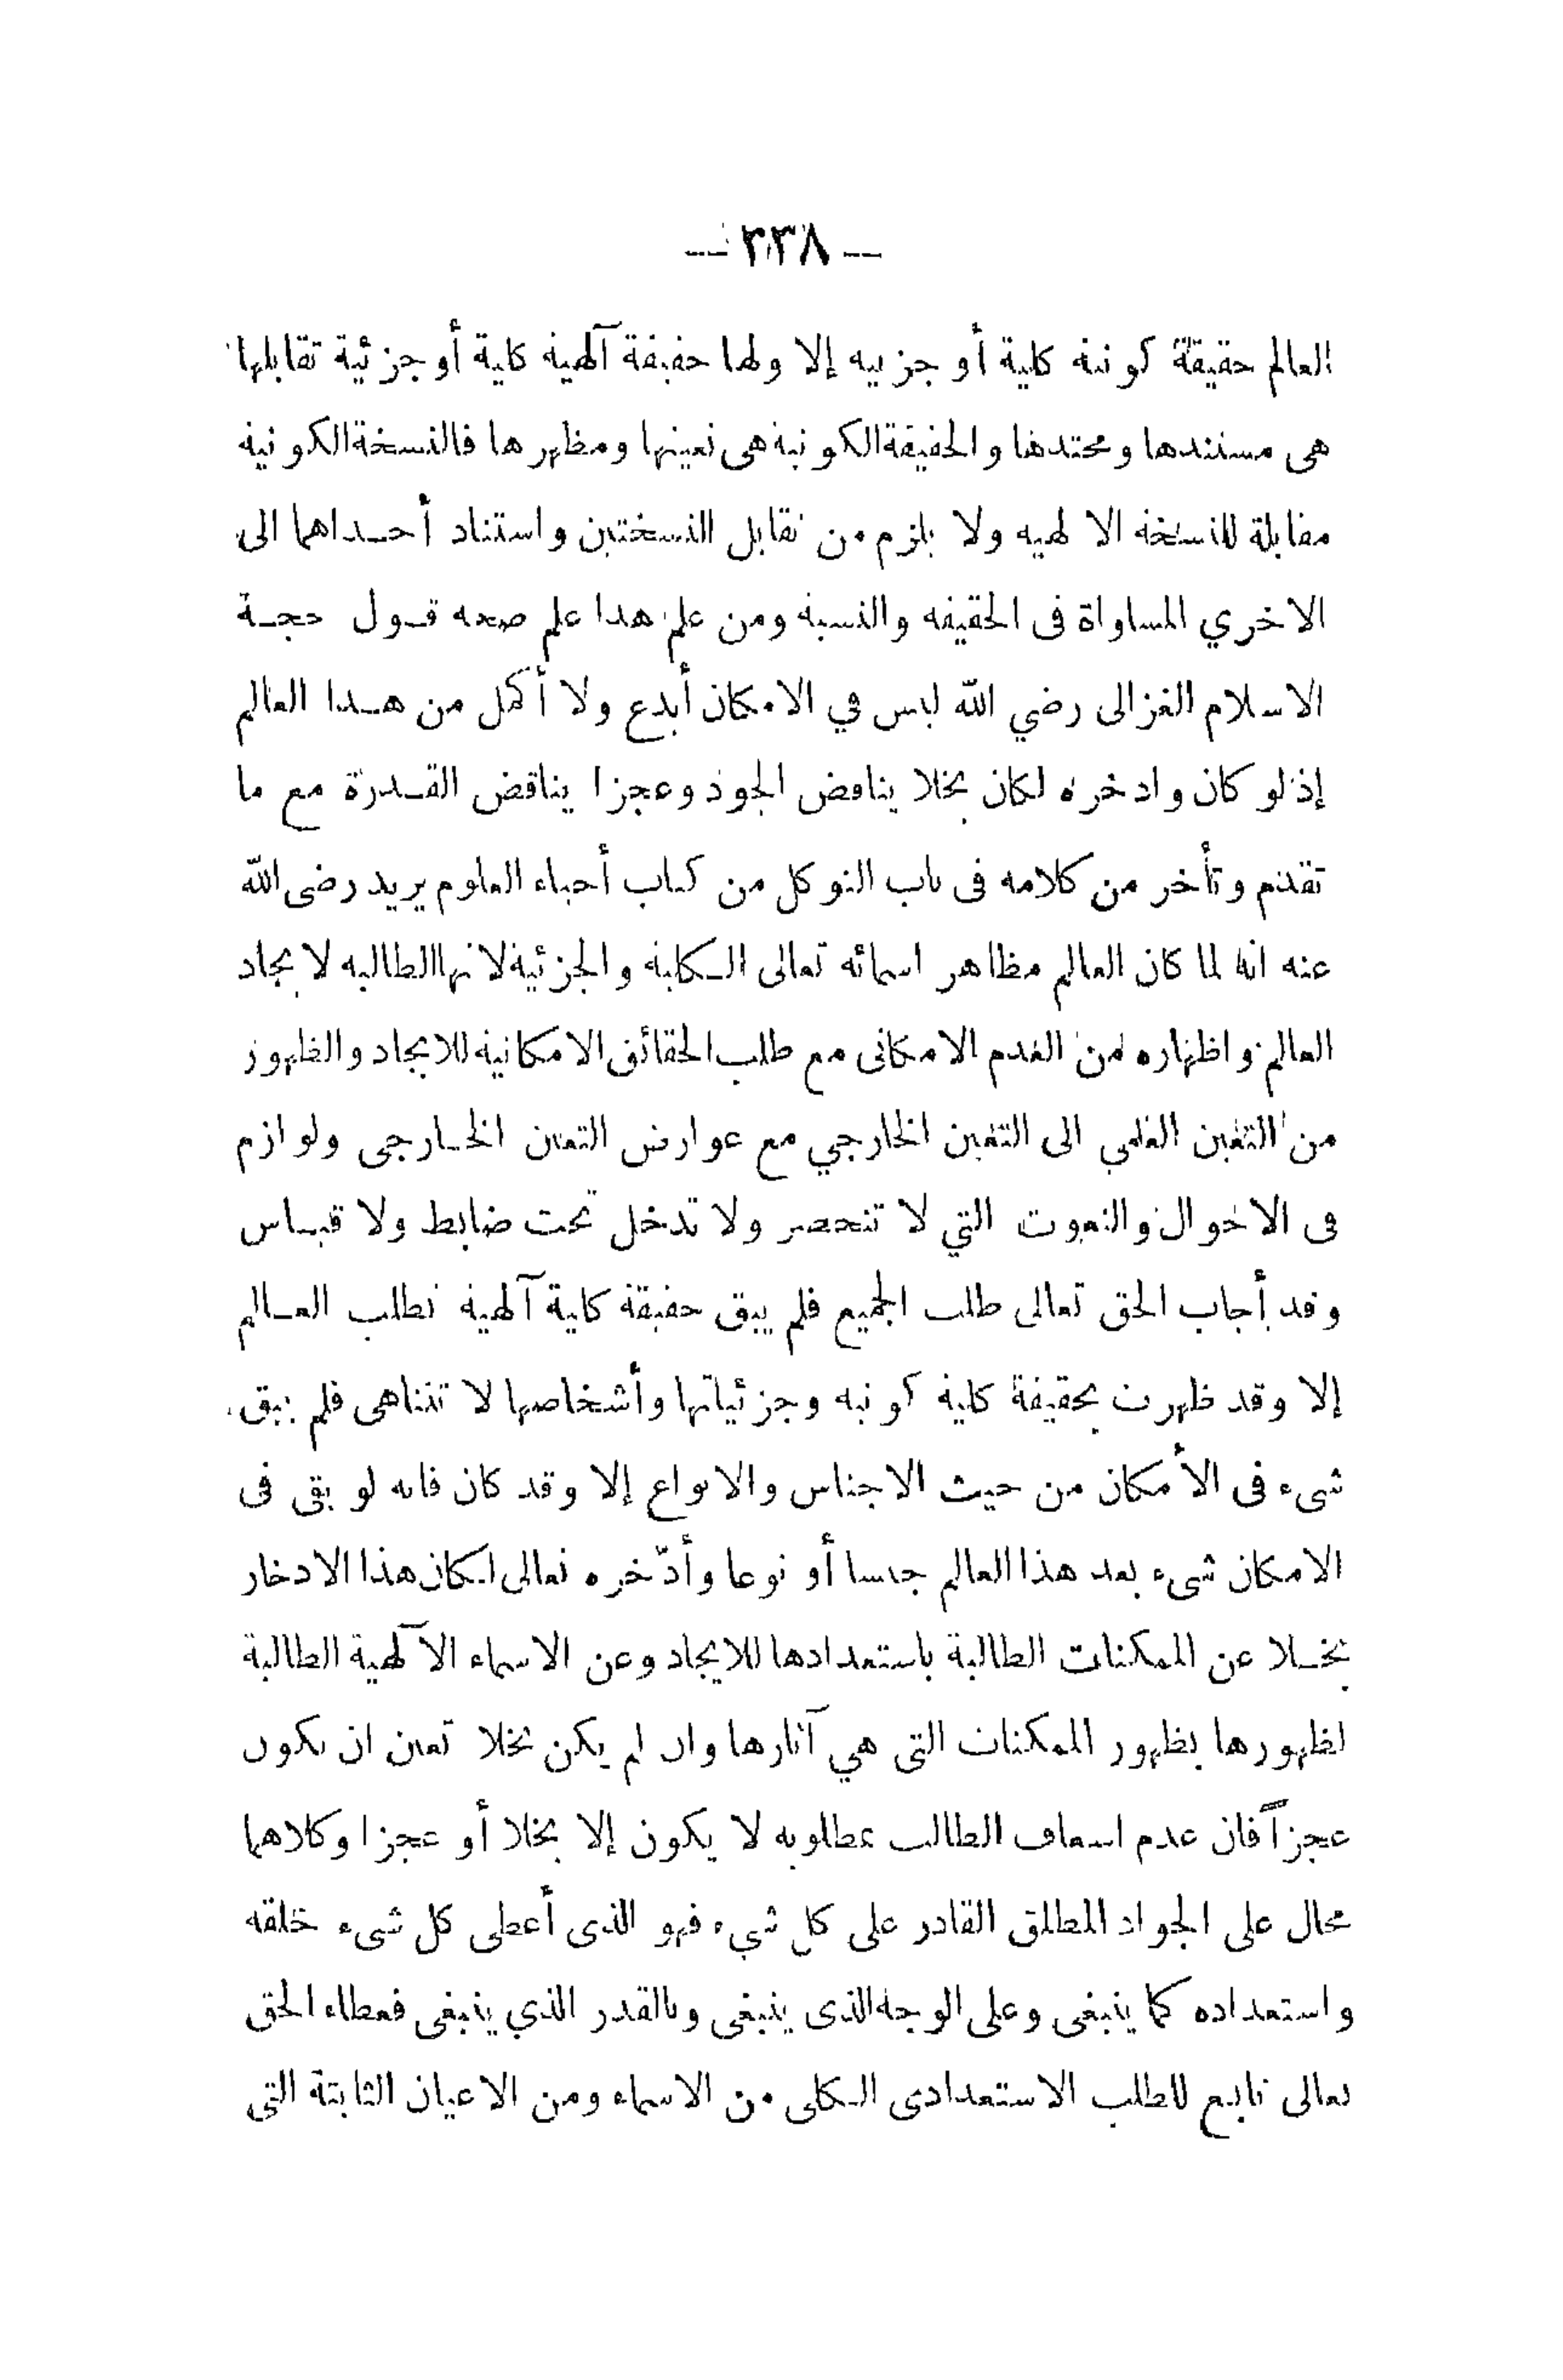 — ٣٣٨ —
العالم حقيقة كونية كلية أو جزئية إلا ولها حقيقة آلهية كلية أو جزئية تقابلها
هى مستندها ومحتدها والحقيقة الكونية هى تعينها ومظهرها فالنسخة الكونية
مقابلة للنسخة الالهية ولا يلزم من تقابل النسختين واستناد أحداهما الى
الاخري المساواة فى الحقيقة والنسبة ومن علم هذا علم صحة قول حجة
الاسلام الغزالى رضي الله ليس في الامكان أبدع ولا أكمل من هذا العالم
إذ لو كان وادخره لكان بخلا يناقض الجود وعجزا يناقض القدرة مع ما
تقدم وتأخر من كلامه فى باب التوكل من كتاب أحياء العلوم يريد رضى الله
عنه انه لما كان العالم مظاهر اسمائه تعالى الكلية والجزئية لانها الطالبة لايجاد
العالم واظهاره من العدم الامكانى مع طلب الحقائق الامكانية للايجاد والظهور
من التعين العلمي الى التعين الخارجي مع عوارض التعين الخارجى ولوازم
فى الاحوال والنعوت التي لا تنحصر ولا تدخل تحت ضابط ولا قياس
وقد أجاب الحق تعالى طلب الجميع فلم يبق حقيقة كلية آلهية تطلب العالم
إلا وقد ظهرت بحقيقة كلية كونية وجزئياتها وأشخاصها لا تتناهى فلم يبق
شىء فى الأمكان من حيث الاجناس والانواع إلا وقد كان فانه لو بقى فى
الامكان شىء بعد هذا العالم جنسا أو نوعا وأدّخره تعالى لكان هذا الادخار
بخلا عن الممكنات الطالبة باستعدادها للايجاد وعن الاسماء الآلهية الطالبة
لظهورها بظهور الممكنات التى هي آثارها وان لم يكن بخلا تعين ان يكون
عجزاً فان عدم اسعاف الطالب بمطلوبه لا يكون إلا بخلا أو عجزا وكلاهما
محال على الجواد المطلق القادر على كل شيء فهو الذى أعطى كل شىء خلقه
واستعداده كما ينبغى وعلى الوجه الذى ينبغى وبالقدر الذي ينبغى فعطاء الحق
تعالى تابع للطلب الاستعدادى الكلى من الاسماء ومن الاعيان الثابتة التى